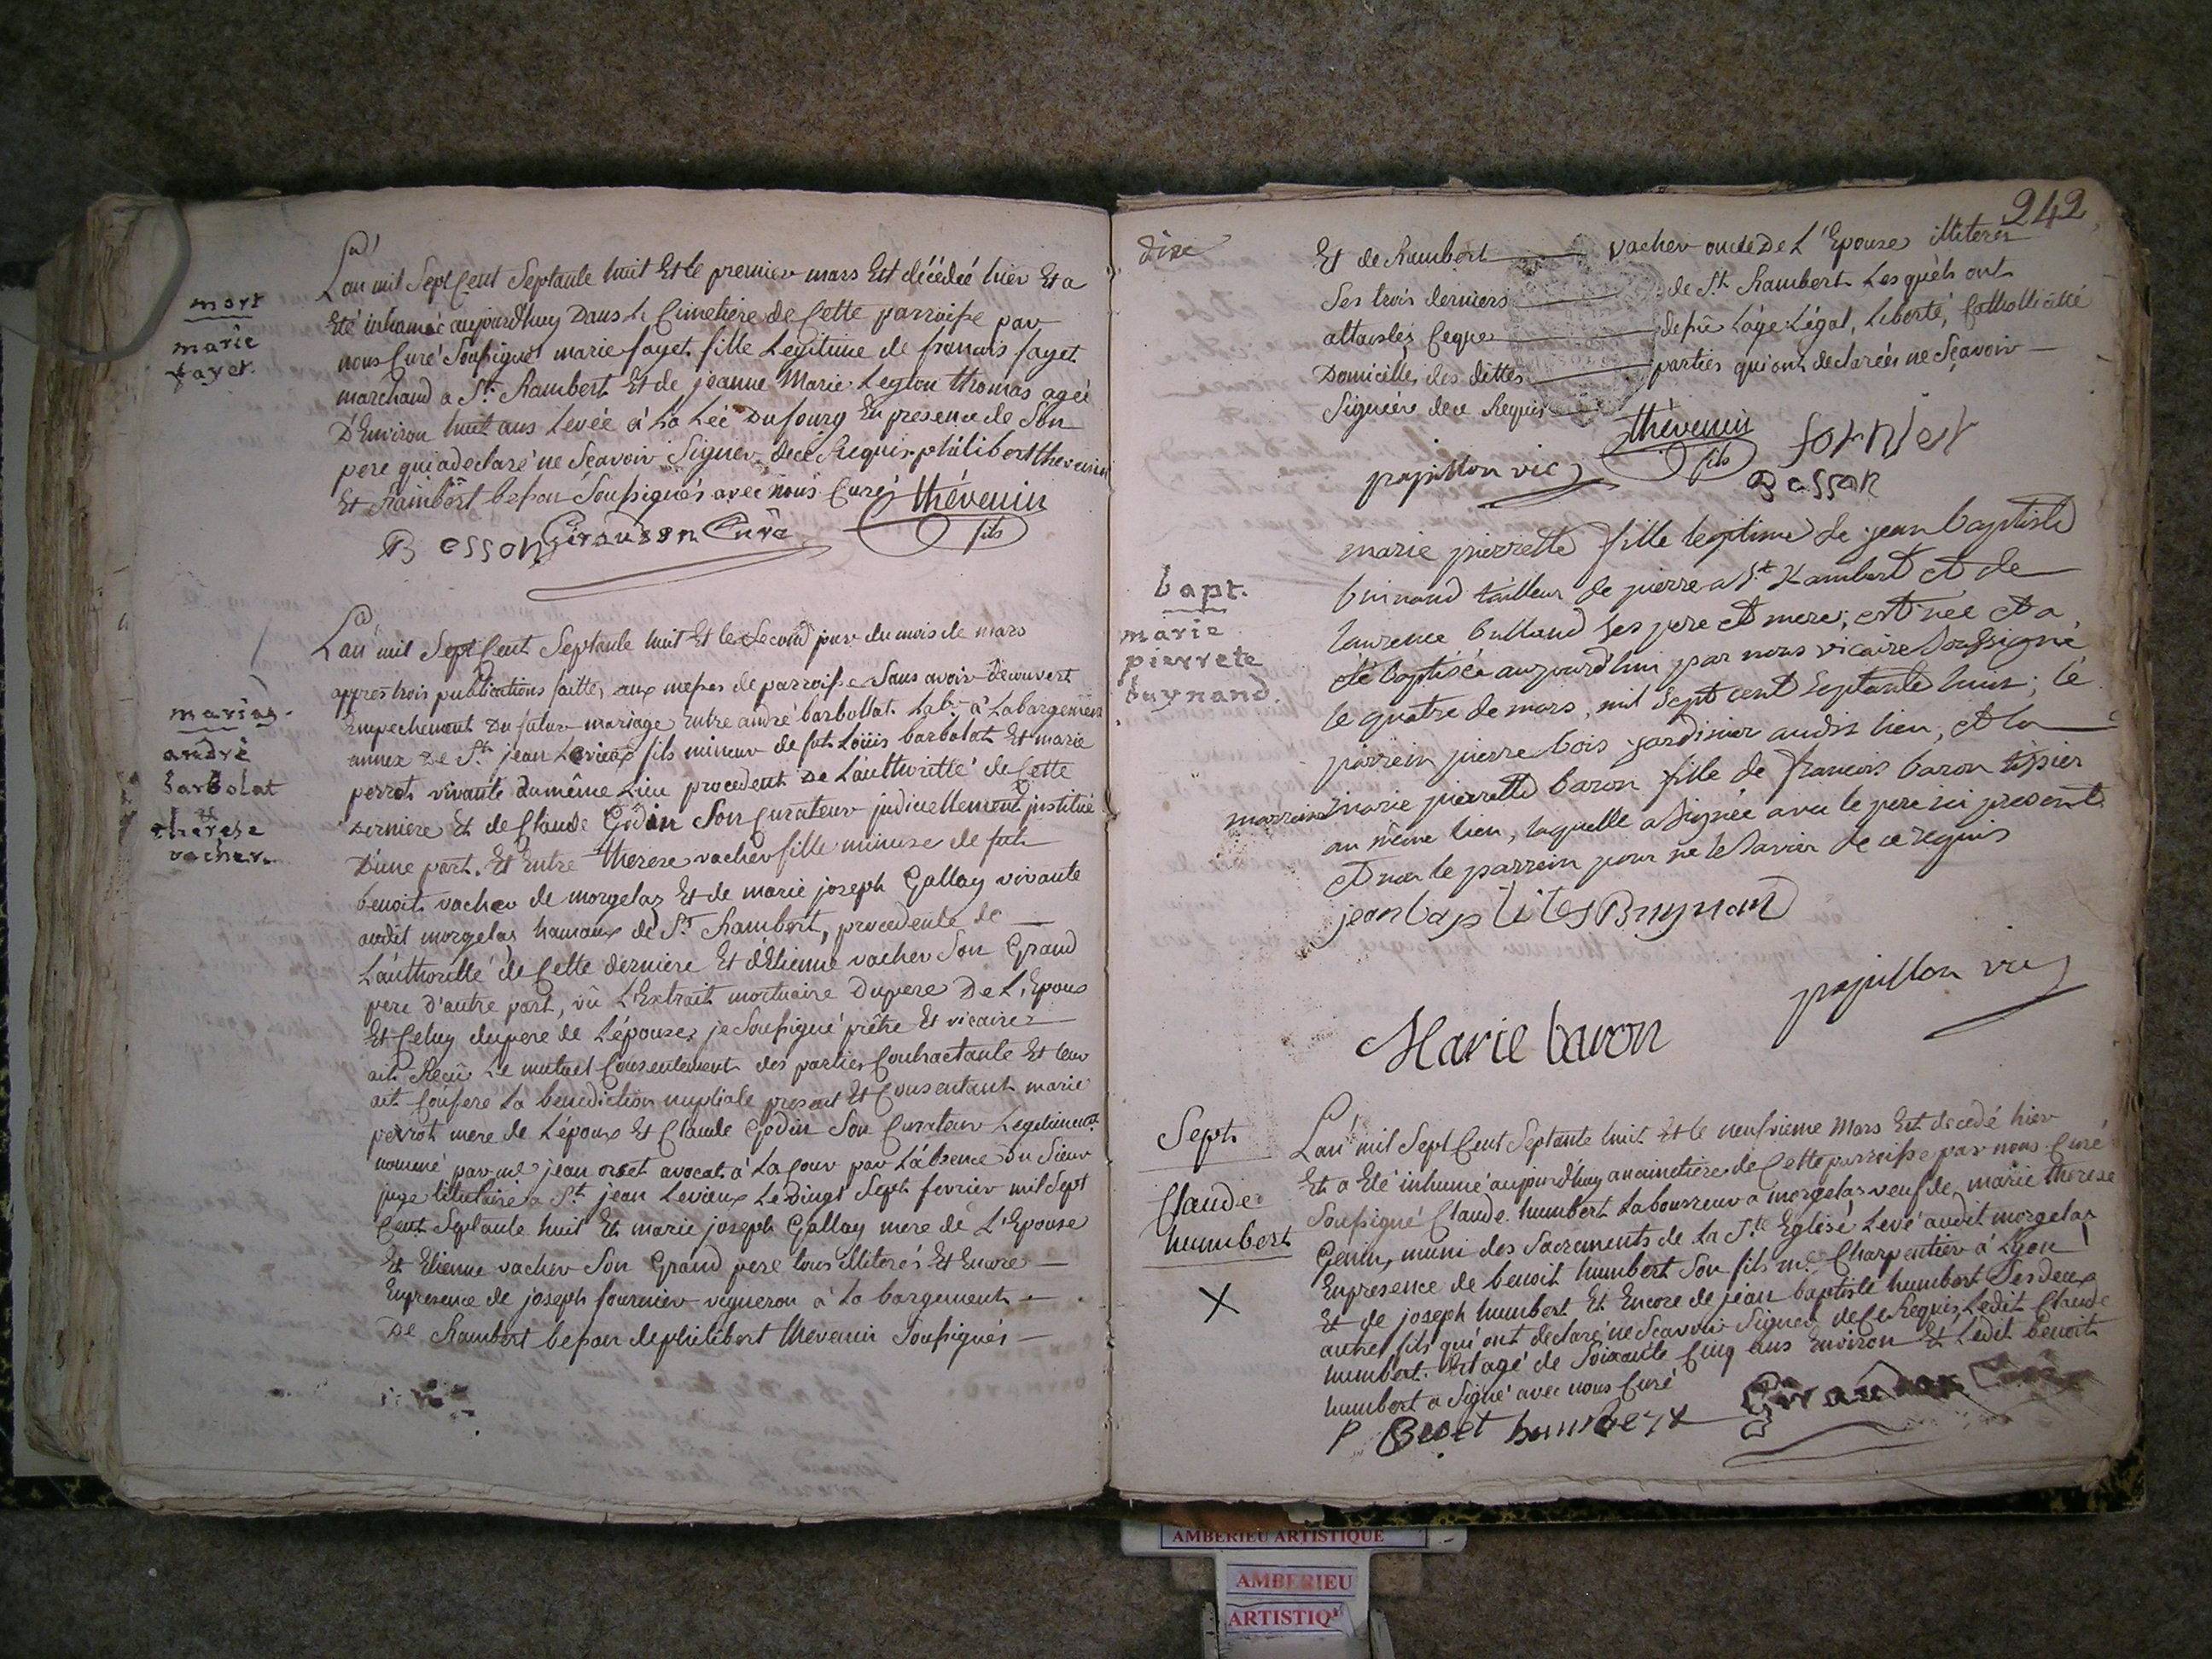 mort
marie
fayet.
L'an mil Sept Cent Septante huit Et le premier mars Est décédeé hier Et a
Eté inhumeé aujourdhuy Dans le Cimetiere de Cette parroisse par
nous Curé Soussigné marie fayet fille Legitime de francois fayet
marchand a St. Rambert Et de jeanne Marie Leglon thomas ageé
D'Environ huit ans Levée à La Leé Dufourg En presence de Son
pere qui a declaré ne Sçavoir Signer dece Requis philibert thevenin
Et Rambert besson Soussignés avec nous Curé thévenin
fils
Besson Girousson Curé
mariag.
andré
barbolat
et
therese
vacher
L'an mil Sept Cent Septante huit Et le Second jour du mois de mars
appres trois publications faittes aux messes de parroisse Sans avoir Decouvert
Empechement Du futur mariage Entre andré barbollat Labr. à Labargement
annex De St. jean Levieux fils mineur de fut Loüis barbolat Et marie
perrot vivante du même Lieu procedent De Lauthoritté de Cette
Derniere Et de Claude Godin Son Curateur judiciellement justitué
D'une part. Et Entre therese vacher fille mineure de fut
benoit vacher de morgelas Et de marie joseph Gallay vivante
audit morgelas hamaux de St. Rambert, procedente de
Lauthoritté de Cette derniere Et d'Etienne vacher Son Grand
pere d'autre part, vû L'Extrait mortuaire Dupere De L'Epoux
Et Celuy dupere de Lépouse, je Soussigné prêtre Et vicaire
ait Reçû Le mutuel Consentement des parties Contractante Et leur
ait Conferé La benediction nuptiale present Et Consentant marie
perrot mere de Lépoux Et Claude Godin Son Curateur Legitiment
nommé par me jean orset avocat à La Cour par L'absence du Sieur
juge titulaire a St. jean Levieux Le Vingt Sept fevrier mil Sept
Cent Septante huit Et marie joseph Gallay mere de L'Epouse
Et Etienne vacher Son Grand pere tous illiterés Et Encore
Enpresence de joseph fournier vigneron à La bargement
De Rambert besson dephilibert thevenin Soussignés
242
dire
Et de Rambert vacher oncle De L'Epouse illiterés
Ses trois derniers de St. Rambert Lesquels ont
attaistés Ceque depûs Láge Légal, Liberté, Catholicité
Domicilles des dittes parties qui ont declareés ne Sçavoir
Signer dece Requis
thévenin
fils
fornier
papillon vic
Besson
bapt.
marie
pierrete
buynand.
marie pierrette fille legitime de jean baptiste
buinand tailleur de pierre a St. Rambert et de
laurence bulland ses pere et mere; est neé et a
été baptisée aujourd'hui par nous vicaire Soussigné
le quatre de mars, mil sept cent septante huit; le
parrein pierre bois jardinier audit lieu, et la
marreine marie pierrette baron fille de francois baron tissier
au même lieu, laquelle a signée avec le pere ici present
et non le parrein pour ne le savoir de ce requis
jean baptites Buynand
papillon vic
Marie baron
Sept.
Claude
humbert
X
L'an mil Sept Cent Septante huit Et le neufvieme Mars Est decedé hier
Et a Eté inhumé aujourdhuy aucimetiere de Cette parroisse par nous Curé
Soussigné Claude humbert Laboureur a morgelas veuf de marie therese
Genin, muni des Sacrements de La Ste. Eglise, Levé audit morgelas
Enpresence de benoit humbert Son fils me. Charpentier à Lyon
Et de joseph humbert Et Encore de jean baptiste humbert Ses deux
autres fils qui ont declaré ne Scavoir Signer, de Ce Requis, Ledit Claude
humbert Est agé de Soixante Cinq ans Environ Et Ledit benoit
humbert a Signé avec nous Curé
humbert
AMBERIEU ARTISTIQUE
AMBERIEU
ARTISTIQ